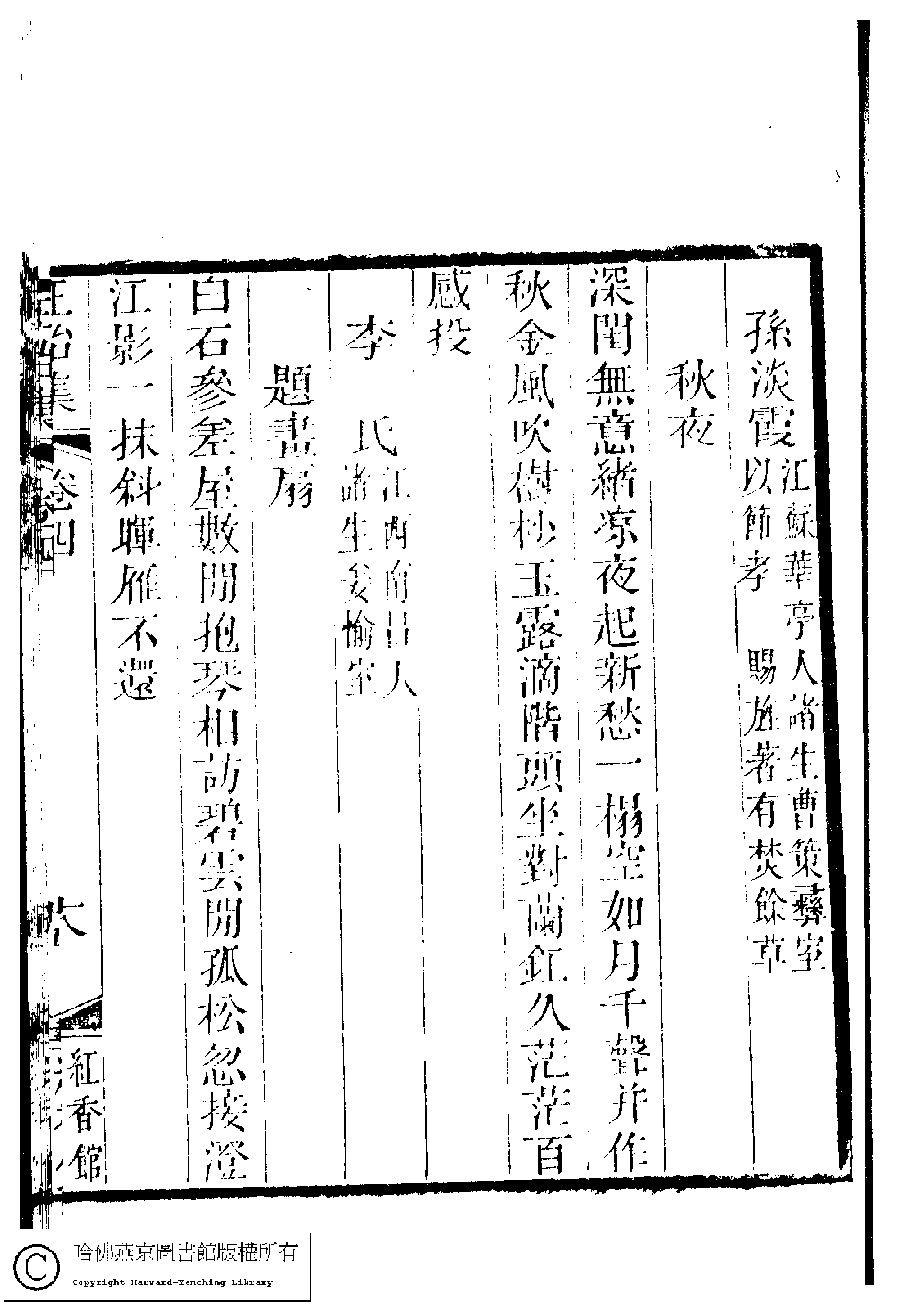 孫淡霞江蘇華亭人諸生曹策彝室
以節孝　賜旌著有焚餘草
秋夜
深閨無意緒涼夜起新愁一榻空如月千聲并作
秋金風吹樹杪玉露滴階頭坐對蘭釭久茫茫百
感投
李　氏江西南昌人
諸生　愉室
題畫扇
白石參差屋數間抱琴相訪碧雲開孤松忽接澄
江影一抹斜暉雁不還
正始集
卷四
紅香館
哈佛燕京圖書館版權所有
Copyright Harvard-Yenching Library